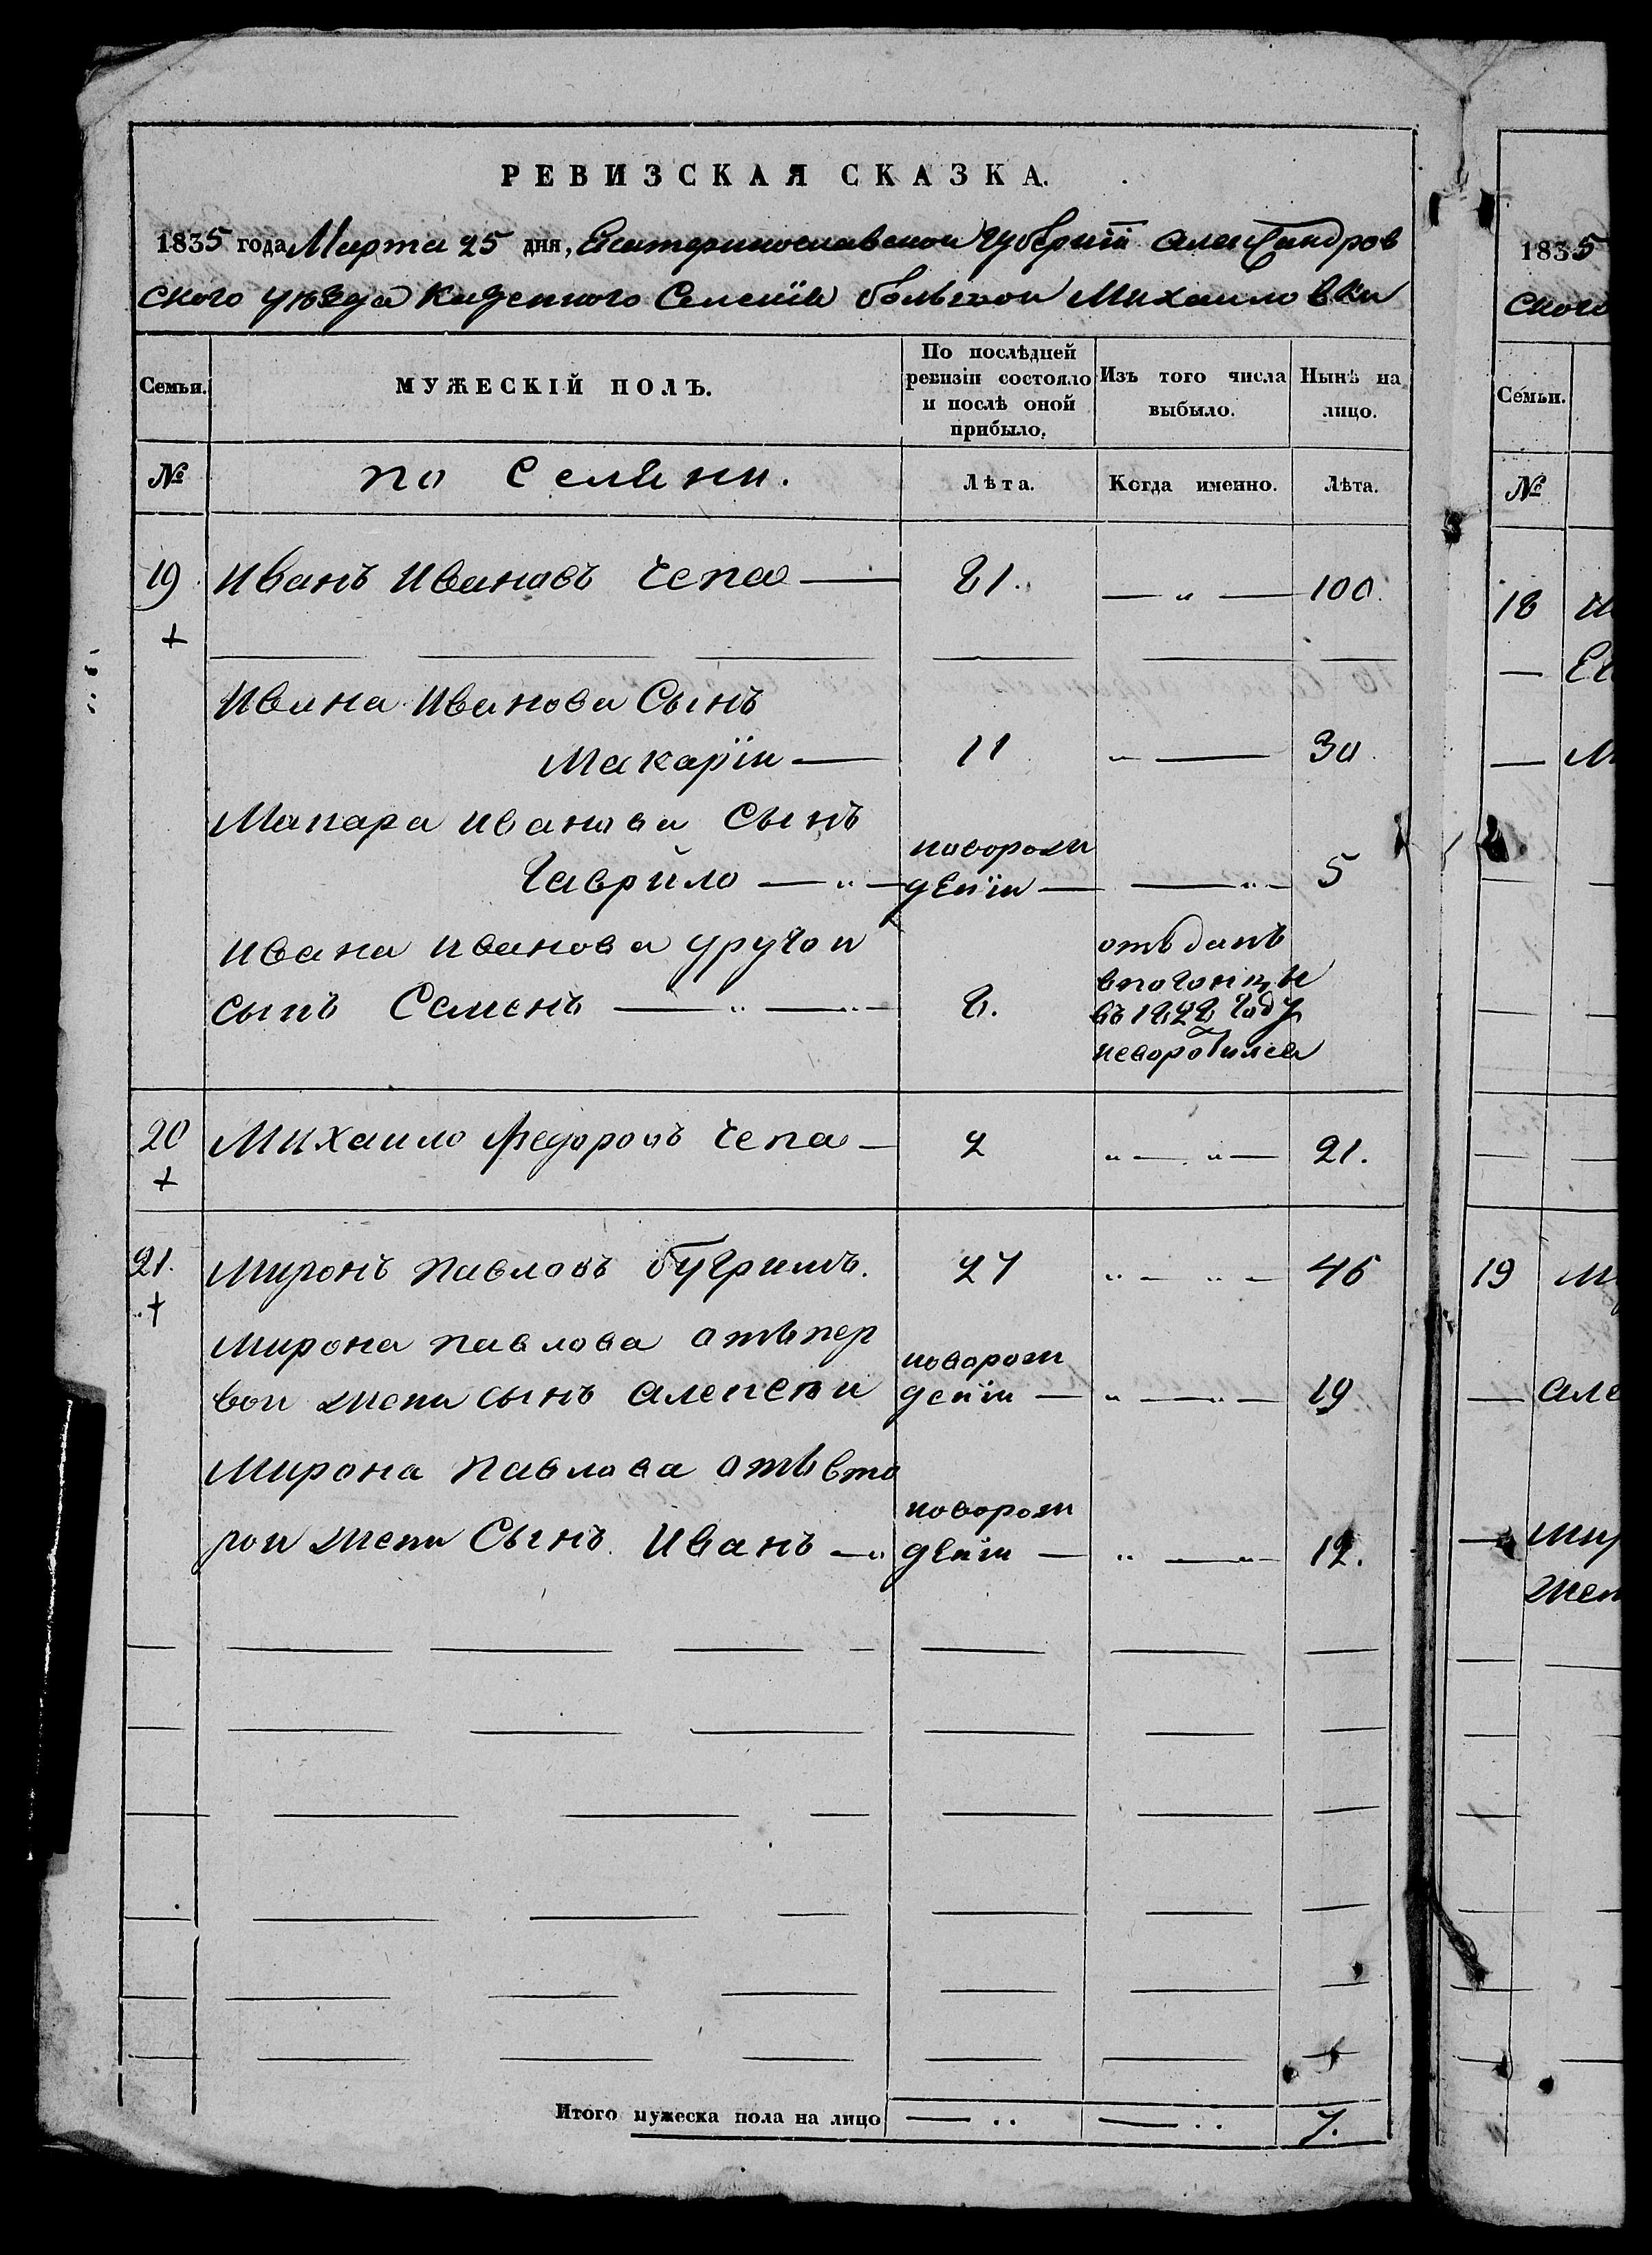 РЕВИЗСКАЯ СКАЗКА.
1835 года Марта 25 дня, Екатеринославской Губерніи Александров
ского уѣзда Казенного Селенія большой Михаиловки
Семьи.
МУЖЕСКІЙ ПОЛЪ.
По послѣдней ревизіи состояло и послѣ оной прибыло.
Изъ того числа выбыло.
Нынѣ на лицо.
№
Лѣта.
Когда именно.
Лѣта.
19 Иванъ Ивановъ Чепа — 81. — „ — 100.
+
Ивана Иванова Сынъ
Макаріи — 11 „ — 30.
Макара Иванова Сынъ
новорож
Гаврило — „ — деніи — — „ — 5
Ивана Иванова другои
отъданъ
впогонцы
сынъ Семенъ — „ — „ — 8. въ 1828 году
неворотился
20 Михаило Федоровъ Чепа — 2 „ — „ — 21.
+
21. Миронъ Павловъ бугримъ. 27 „ — „ — 46
+
Мирона Павлова отъпер
новорож
вои жени сынъ Алексѣи деніи — „ — „ — 19
Мирона Павлова отъвто
новорож
рои жени Сынъ Иванъ — „ деніи — „ — „ — 12.
Итого мужеска пола на лицо — „ — „ 7.
1835
ского
Семьи.
№
18
19
але
мир
жен